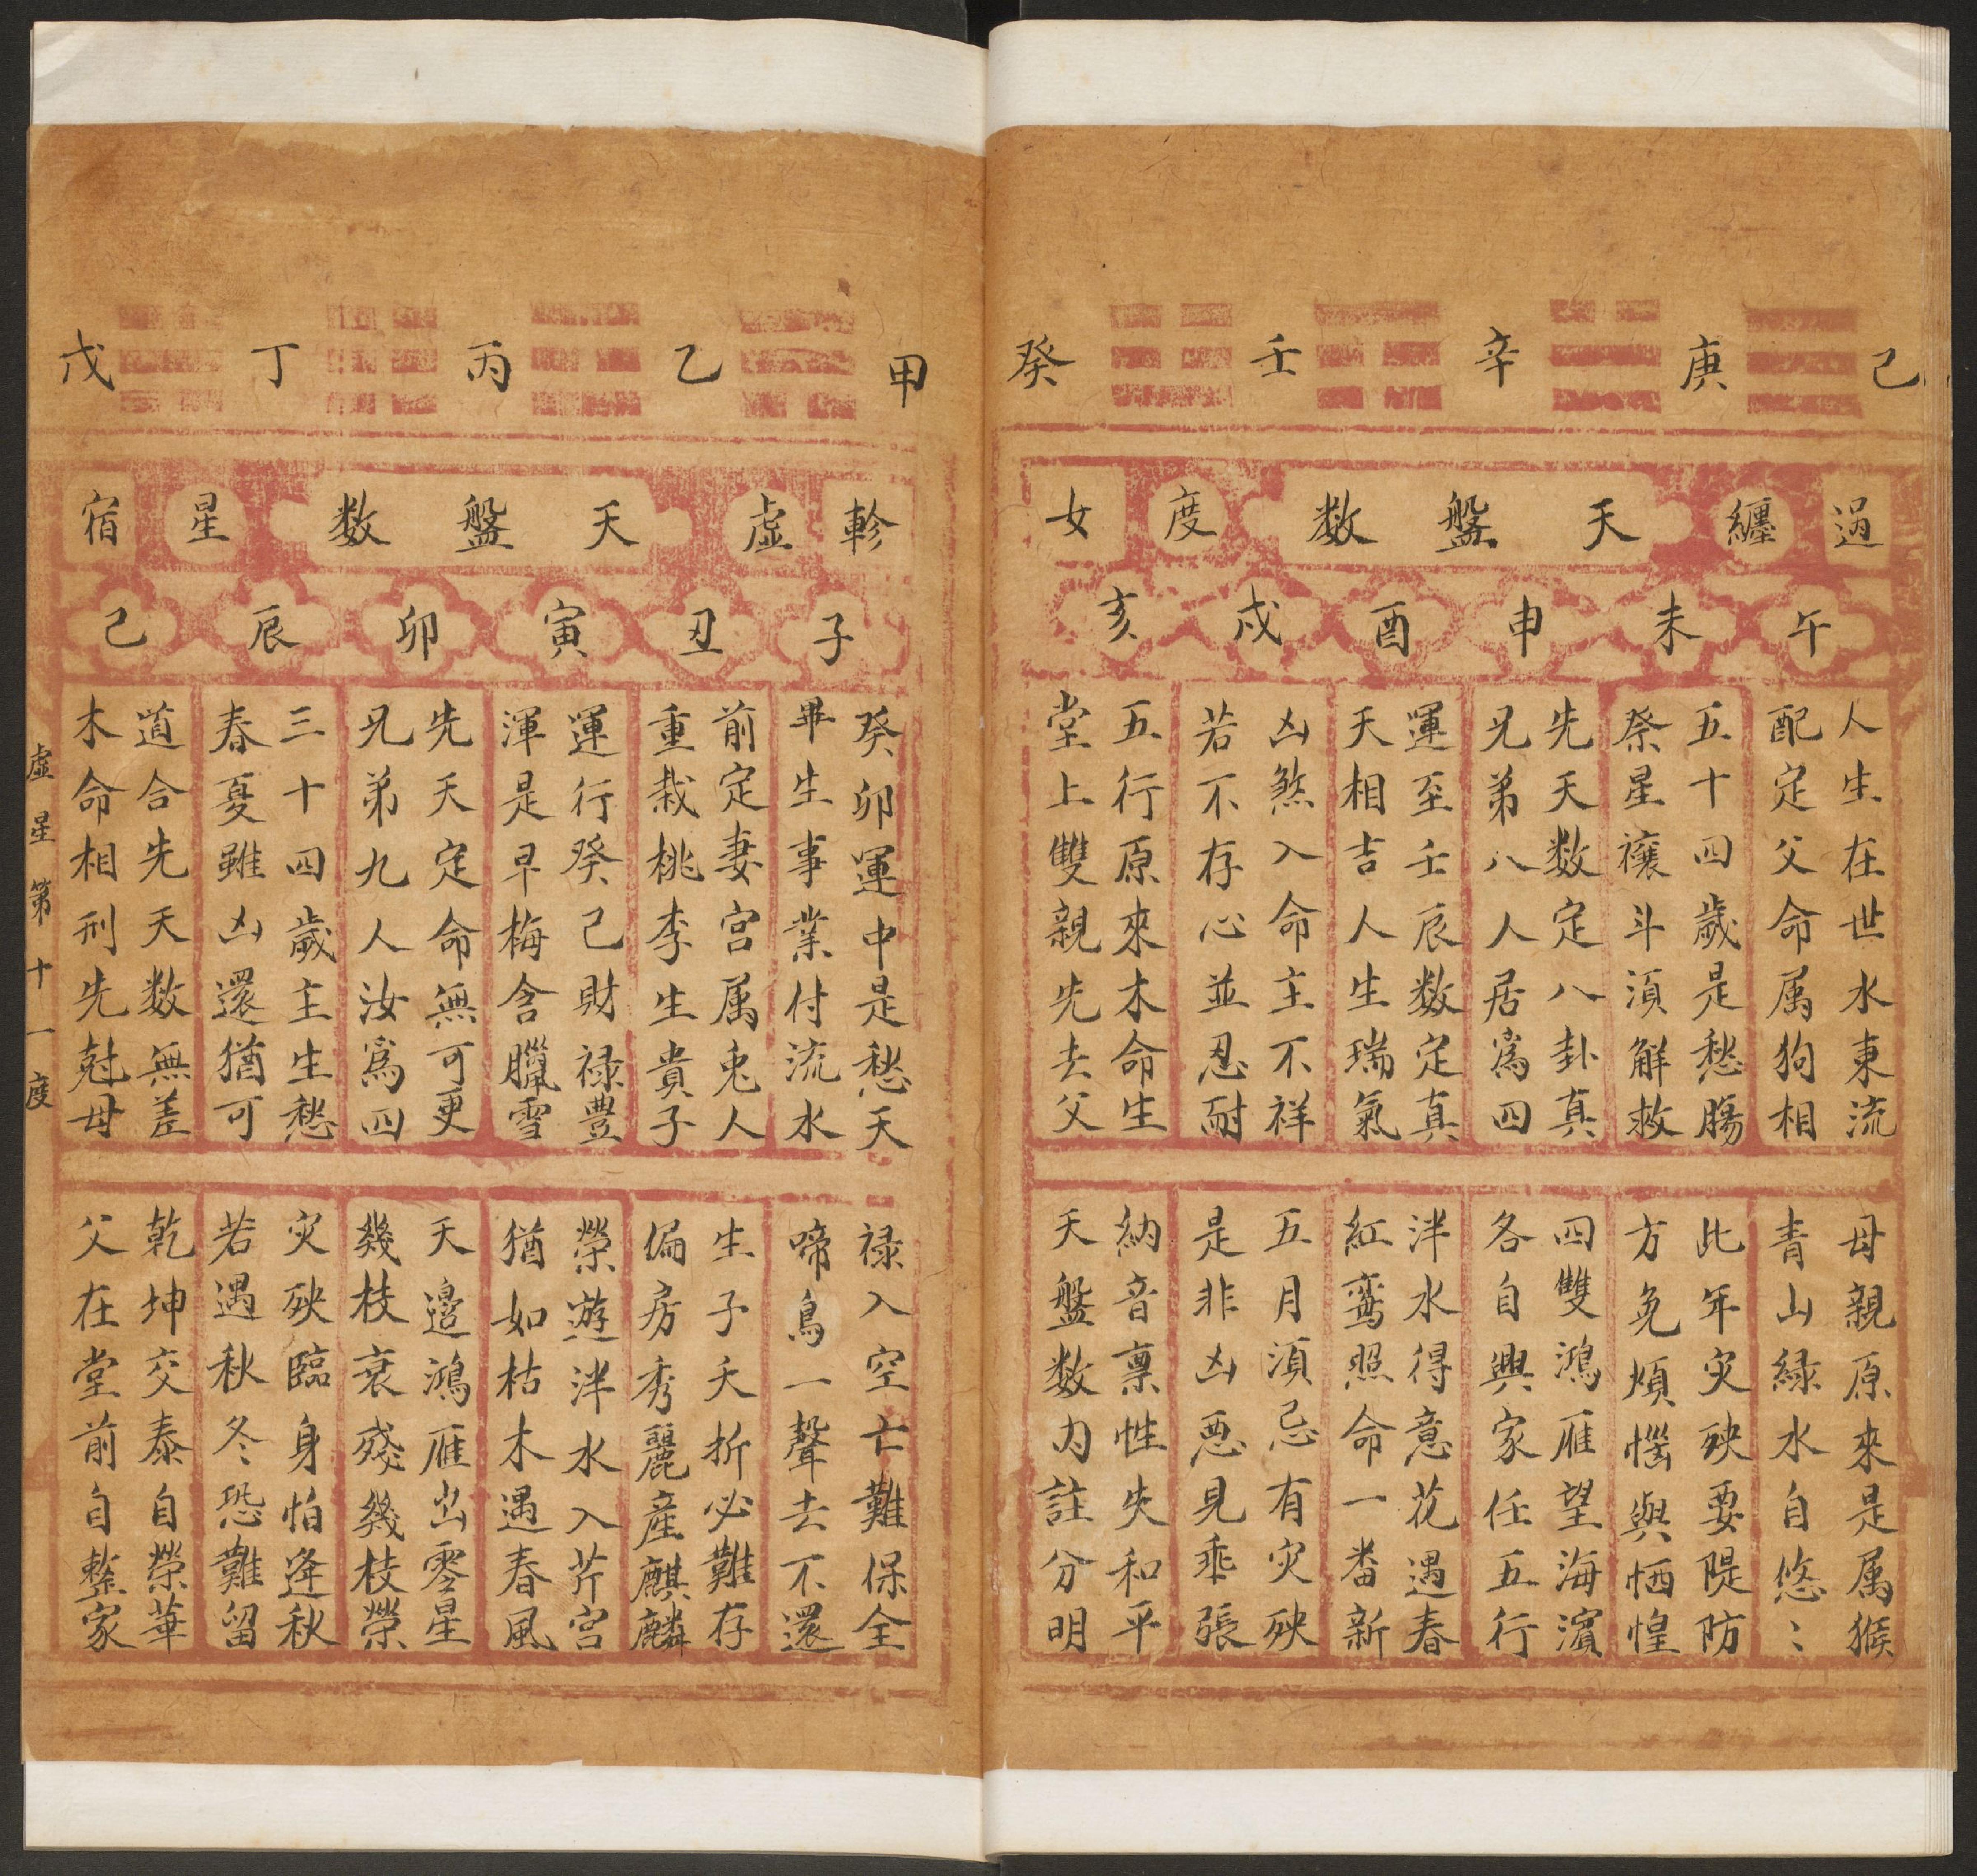 己 庚 辛 壬 癸
過 纏 天 盤 数 度 女
午 未 申 酉 戌 亥
人生在世水東流
配定父命属狗相
五十四歲是愁腸
祭星禳斗湏解救
先天数定八卦真
兄弟八人居爲四
運至壬辰数定真
天相吉人生瑞氣
凶煞入命主不祥
若不存心並忍耐
五行原來木命生
堂上雙親先去父
母親原來是属猴
青山緑水自悠〻
此年灾殃要隄防
方免煩惱與恓惶
四雙鴻雁望海濱
各自興家任五行
泮水得意花遇春
紅鸞照命一番新
五月湏忌有灾殃
是非凶惡見乖張
納音禀性失和平
天盤数内註分明
甲 乙 丙 丁 戊
軫 虛 天 盤 数 星 宿
子 丑 寅 卯 辰 巳
癸卯運中是愁天
畢生事業付流水
前定妻宮属兎人
重栽桃李生貴子
運行癸己財禄豊
渾是早梅含臘雪
先天定命無可更
兄弟九人汝爲四
三十四歲主生愁
春夏雖凶還猶可
道合先天数無差
木命相刑先尅母
禄入空亡難保全
啼鳥一聲去不還
生子夭折必難存
偏房秀麗産麒麟
榮遊泮水入芹宮
猶如枯木遇春風
天邉鴻雁出零星
幾枝衰殘幾枝榮
灾殃臨身怕逢秋
若遇秋冬恐難留
乾坤交泰自榮華
父在堂前自整家
虛星第十一度